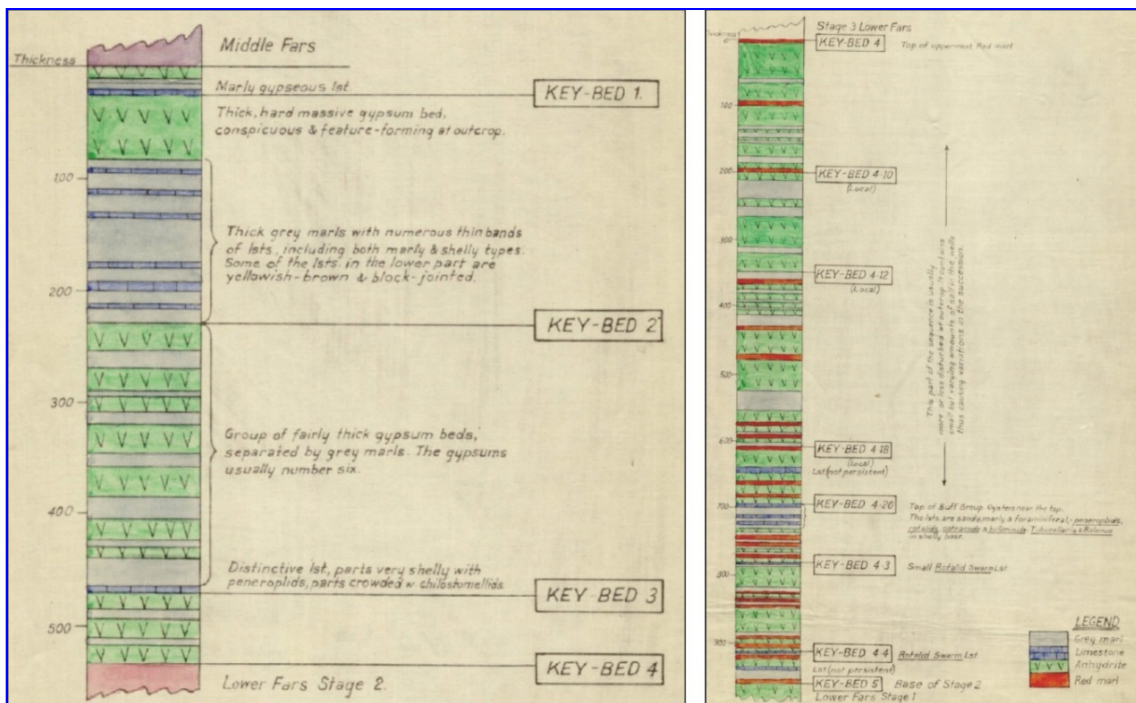 Middle Fars
Thickness
Marly gypseous lst.
KEY-BED 1.
Thick, hard massive gypsum bed,
conspicuous & feature-forming at outcrop.
100
Thick grey marls with numerous thin bands
of lsts, including both marly & shelly types.
Some of the lsts. in the lower part are
yellowish-brown & block-jointed.
200
KEY-BED 2
300
Group of fairly thick gypsum beds,
separated by grey marls. The gypsums
usually number six.
400
Distinctive lst, parts very shelly with
peneroplids, parts crowded w. chilostomellids.
KEY-BED 3
500
KEY-BED 4
Lower Fars Stage 2.
Stage 3 Lower Fars
Thickness
KEY-BED 4
Top of uppermost Red marl
100
KEY-BED 4·10
200
(Local)
300
KEY-BED 4·12
(Local)
400
This part of the sequence is usually
more or less disturbed at outcrop. It contains
small but varying amounts of salt in the wells
thus causing variations in the succession
500
600
KEY-BED 4·18
(Local)
Lst (not persistent)
KEY-BED 4·20
700
Top of Buff Group. Oysters near the top.
The lsts are sandy, marly & foraminiferal,- peneroplids,
rotalids, & Tubucellaria & Balanus
in shelly base.
KEY-BED 4·3
Small Rotalid Swarm Lst
800
900
KEY-BED 4·4
Rotalid Swarm Lst
Lst (not persistent)
KEY-BED 5
Base of Stage 2
Lower Fars Stage 1
LEGEND
Grey marl
Limestone
Anhydrite
Red marl